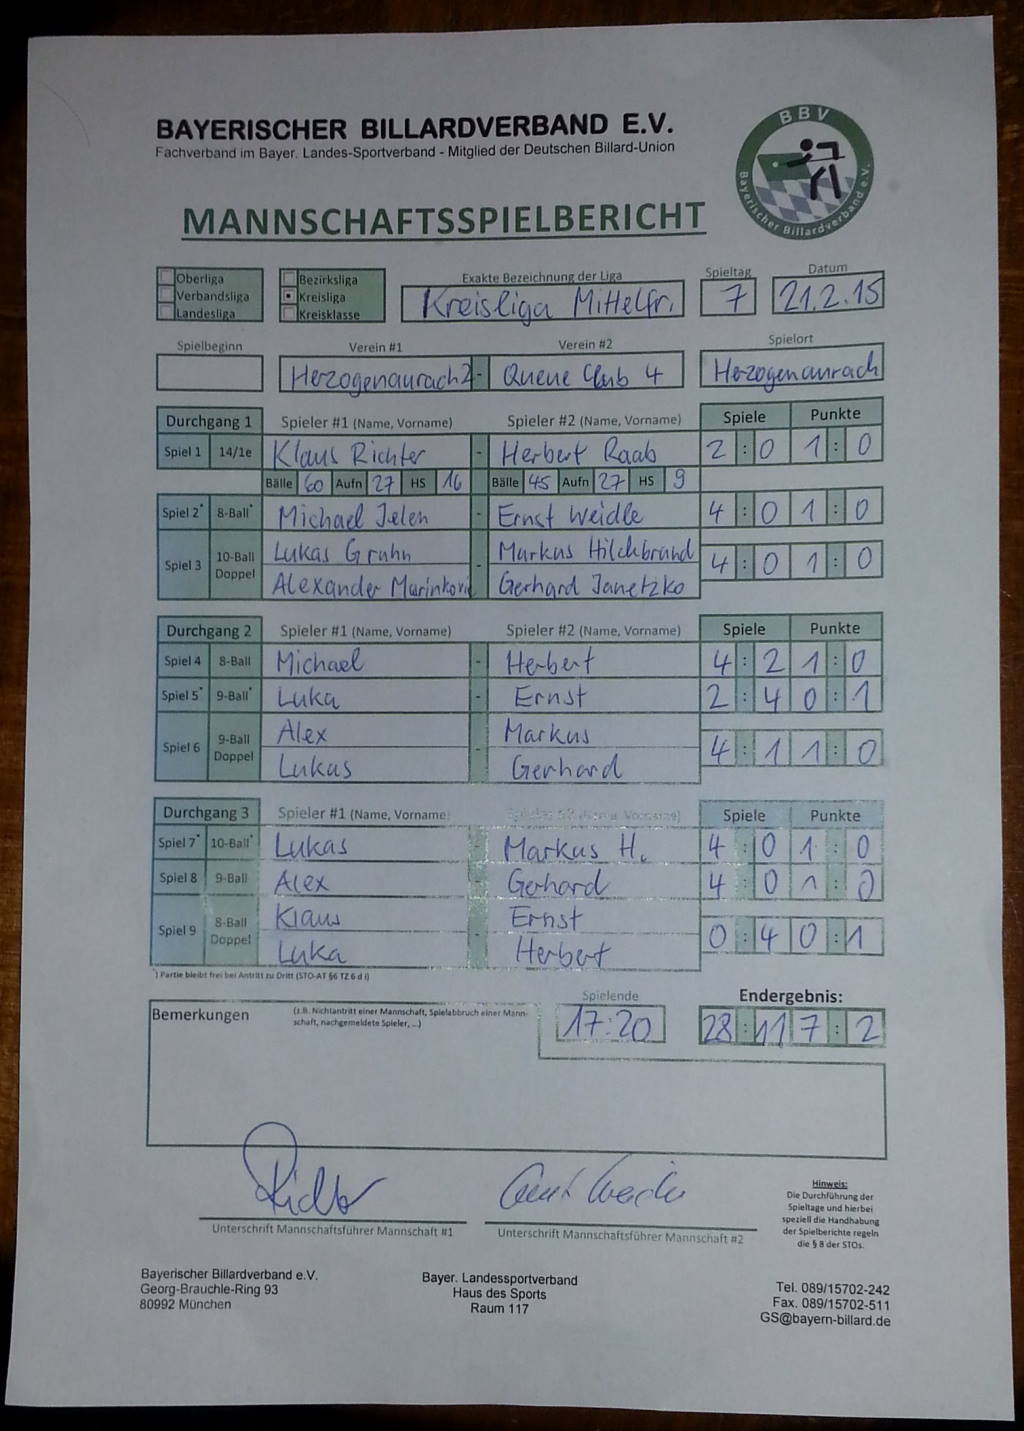 BAYERISCHER BILLARDVERBAND E.V.
Fachverband im Bayer. Landes-Sportverband - Mitglied der Deutschen Billard-Union
BBV
Bayerischer Billardverband e.V.
MANNSCHAFTSSPIELBERICHT
Oberliga Bezirksliga Exakte Bezeichnung der Liga Spieltag Datum
Verbandsliga Kreisliga Kreisliga Mittelfr. 7 21.2.15
Landesliga Kreisklasse
Spielbeginn Verein #1 Verein #2 Spielort
Herzogenaurach 2 - Queue Club 4 Herzogenaurach
Durchgang 1 Spieler #1 (Name, Vorname) Spieler #2 (Name, Vorname) Spiele Punkte
Spiel 1 14/1e Klaus Richter - Herbert Raab 2 : 0 1 : 0
Bälle 60 Aufn 27 HS 16 Bälle 45 Aufn 27 HS 9
Spiel 2* 8-Ball* Michael Jelen - Ernst Weidle 4 : 0 1 : 0
Spiel 3 10-Ball Doppel Lukas Gruhn - Markus Hildebrand 4 : 0 1 : 0
Alexander Marinkovic Gerhard Janetzko
Durchgang 2 Spieler #1 (Name, Vorname) Spieler #2 (Name, Vorname) Spiele Punkte
Spiel 4 8-Ball Michael - Herbert 4 : 2 1 : 0
Spiel 5* 9-Ball* Luka - Ernst 2 : 4 0 : 1
Spiel 6 9-Ball Doppel Alex - Markus 4 : 1 1 : 0
Lukas Gerhard
Durchgang 3 Spieler #1 (Name, Vorname) Spieler #2 (Name, Vorname) Spiele Punkte
Spiel 7* 10-Ball* Lukas - Markus H. 4 : 0 1 : 0
Spiel 8 9-Ball Alex - Gerhard 4 : 0 1 : 0
Spiel 9 8-Ball Doppel Klaus - Ernst 0 : 4 0 : 1
Luka Herbert
*) Partie bleibt frei bei Antritt zu Dritt (STO-AT §6 TZ 6 d i)
Spielende Endergebnis:
Bemerkungen (z.B. Nichtantritt einer Mannschaft, Spielabbruch einer Mann-
schaft, nachgemeldete Spieler, ...)
17:20 28 : 11 7 : 2
Unterschrift Mannschaftsführer Mannschaft #1
Unterschrift Mannschaftsführer Mannschaft #2
Hinweis:
Die Durchführung der
Spieltage und hierbei
speziell die Handhabung
der Spielberichte regeln
die § 8 der STOs.
Bayerischer Billardverband e.V.
Georg-Brauchle-Ring 93
80992 München
Bayer. Landessportverband
Haus des Sports
Raum 117
Tel. 089/15702-242
Fax. 089/15702-511
GS@bayern-billard.de